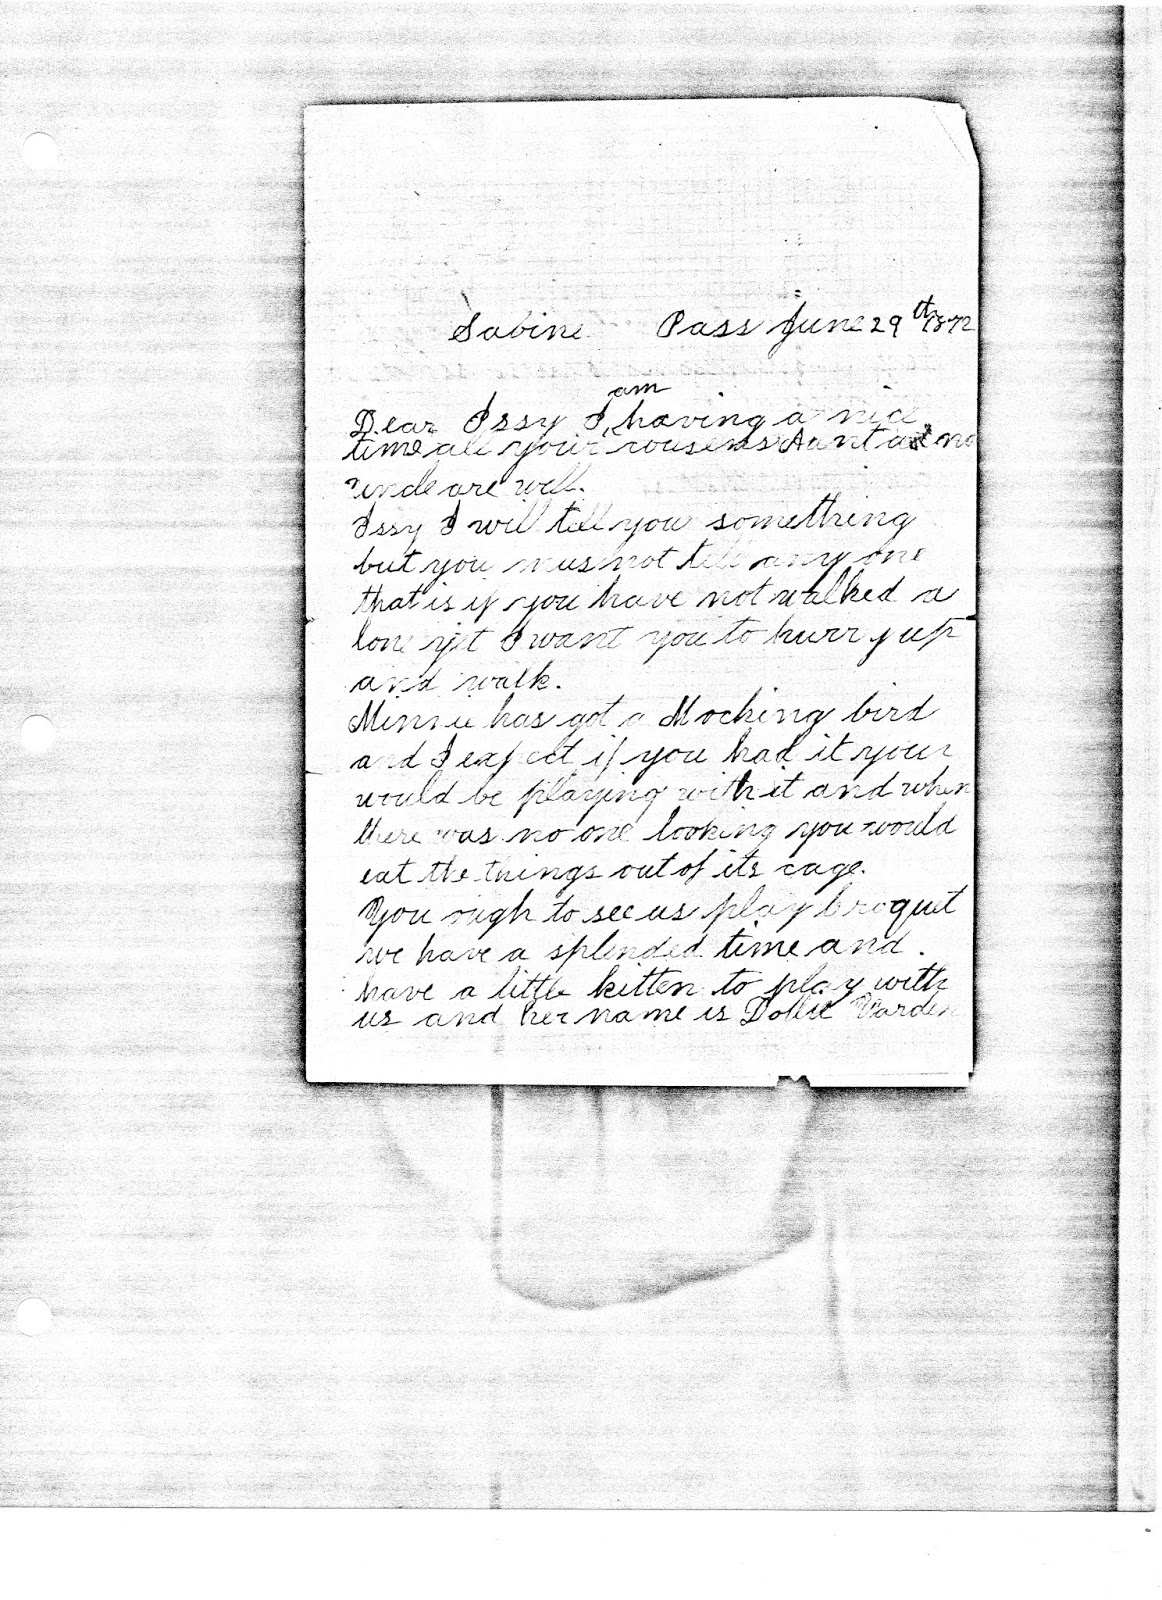 Sabine Pass June 29th 1872
Dear Issy I am having a nice
time all your cousens Aunt and
uncle are well.
Issy I will tell you something
but you mus not tell any one
that is if you have not walked a
lone yet I want you to hurry up
and walk.
Minnie has got a Mocking bird
and I expect if you had it your
would be playing with it and when
there was no one looking you would
eat the things out of its cage.
You ough to see us play broquet
we have a splended time and
have a little kitten to play with
us and her name is Dollie Varden